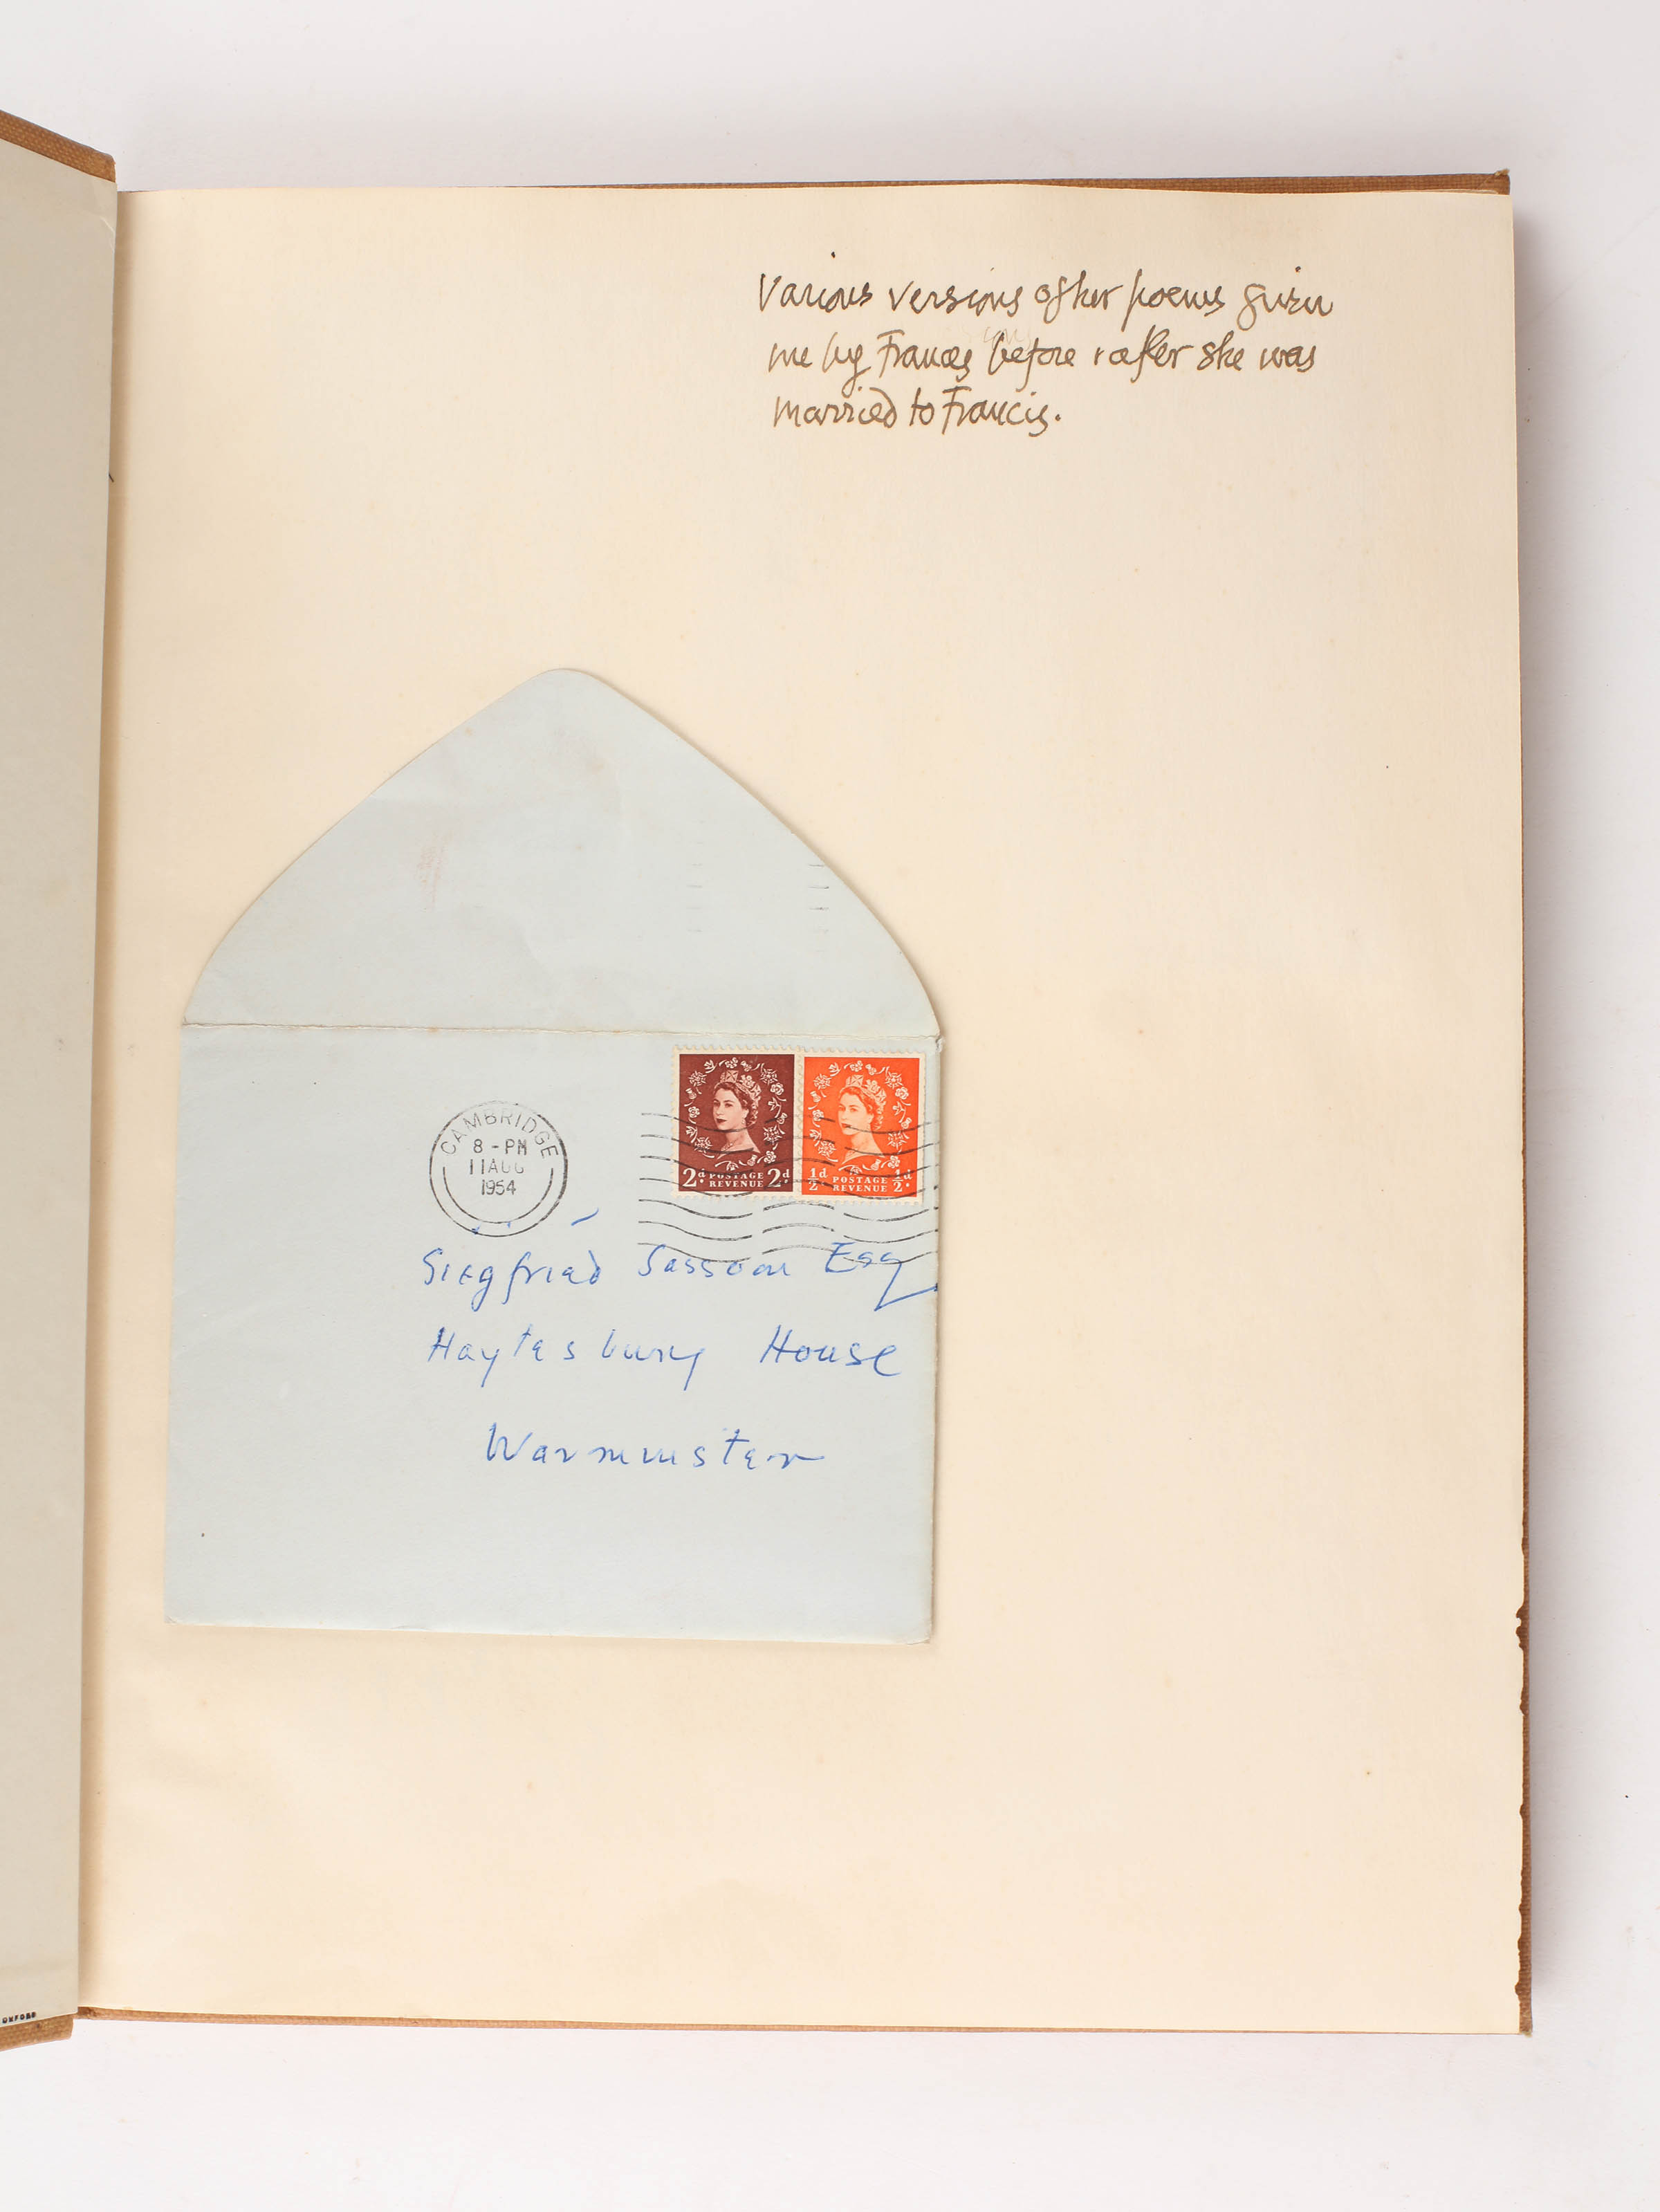 Various versions of her poems given
me by Frances before & after she was
married to Francis.
CAMBRIDGE
8 - PM
11 AUG
1954
2d. POSTAGE REVENUE 2d.
½d. POSTAGE REVENUE ½d.
Siegfried Sassoon Esq
Heytesbury House
Warminster
OXFORD